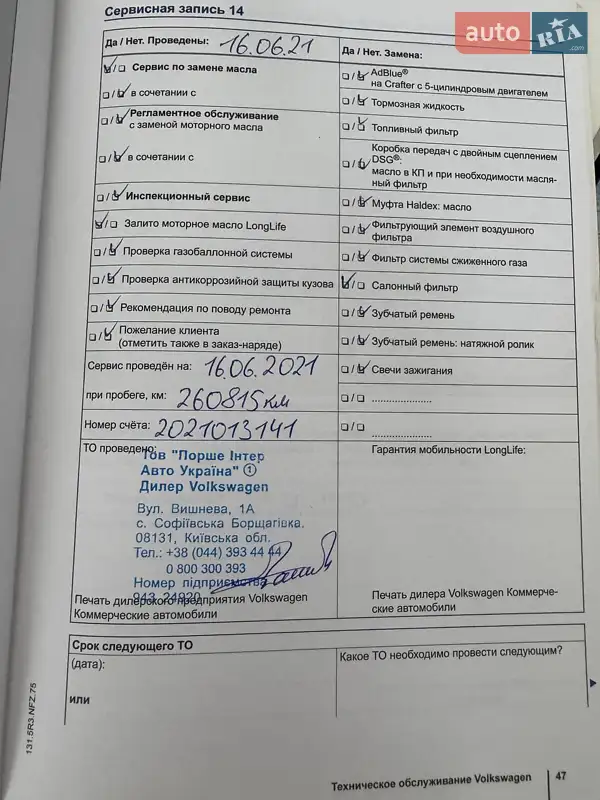 Сервисная запись 14
auto RIA .com
Да / Нет. Проведены: 16.06.21
Сервис по замене масла
в сочетании с
Регламентное обслуживание
с заменой моторного масла
в сочетании с
Инспекционный сервис
Залито моторное масло LongLife
Проверка газобаллонной системы
Проверка антикоррозийной защиты кузова
Рекомендация по поводу ремонта
Пожелание клиента
(отметить также в заказ-наряде)
Сервис проведён на: 16.06.2021
при пробеге, км: 260815 км
Номер счёта: 2021013141
ТО проведено:
Тов "Порше Інтер
Авто Україна" ①
Дилер Volkswagen
Вул. Вишнева, 1А
с. Софіївська Борщагівка.
08131, Київська обл.
Тел.: +38 (044) 393 44 44
0 800 300 393
Номер підприємства
943 24920
Печать дилерского предприятия Volkswagen
Коммерческие автомобили
Да / Нет. Замена:
AdBlue®
на Crafter с 5-цилиндровым двигателем
Тормозная жидкость
Топливный фильтр
Коробка передач с двойным сцеплением
DSG®:
масло в КП и при необходимости масля-
ный фильтр
Муфта Haldex: масло
Фильтрующий элемент воздушного
фильтра
Фильтр системы сжиженного газа
Салонный фильтр
Зубчатый ремень
Зубчатый ремень: натяжной ролик
Свечи зажигания
.....................
.....................
Гарантия мобильности LongLife:
Печать дилера Volkswagen Коммерче-
ские автомобили
Срок следующего ТО
(дата):
или
Какое ТО необходимо провести следующим?
131.5R3.NFZ.75
Техническое обслуживание Volkswagen 47